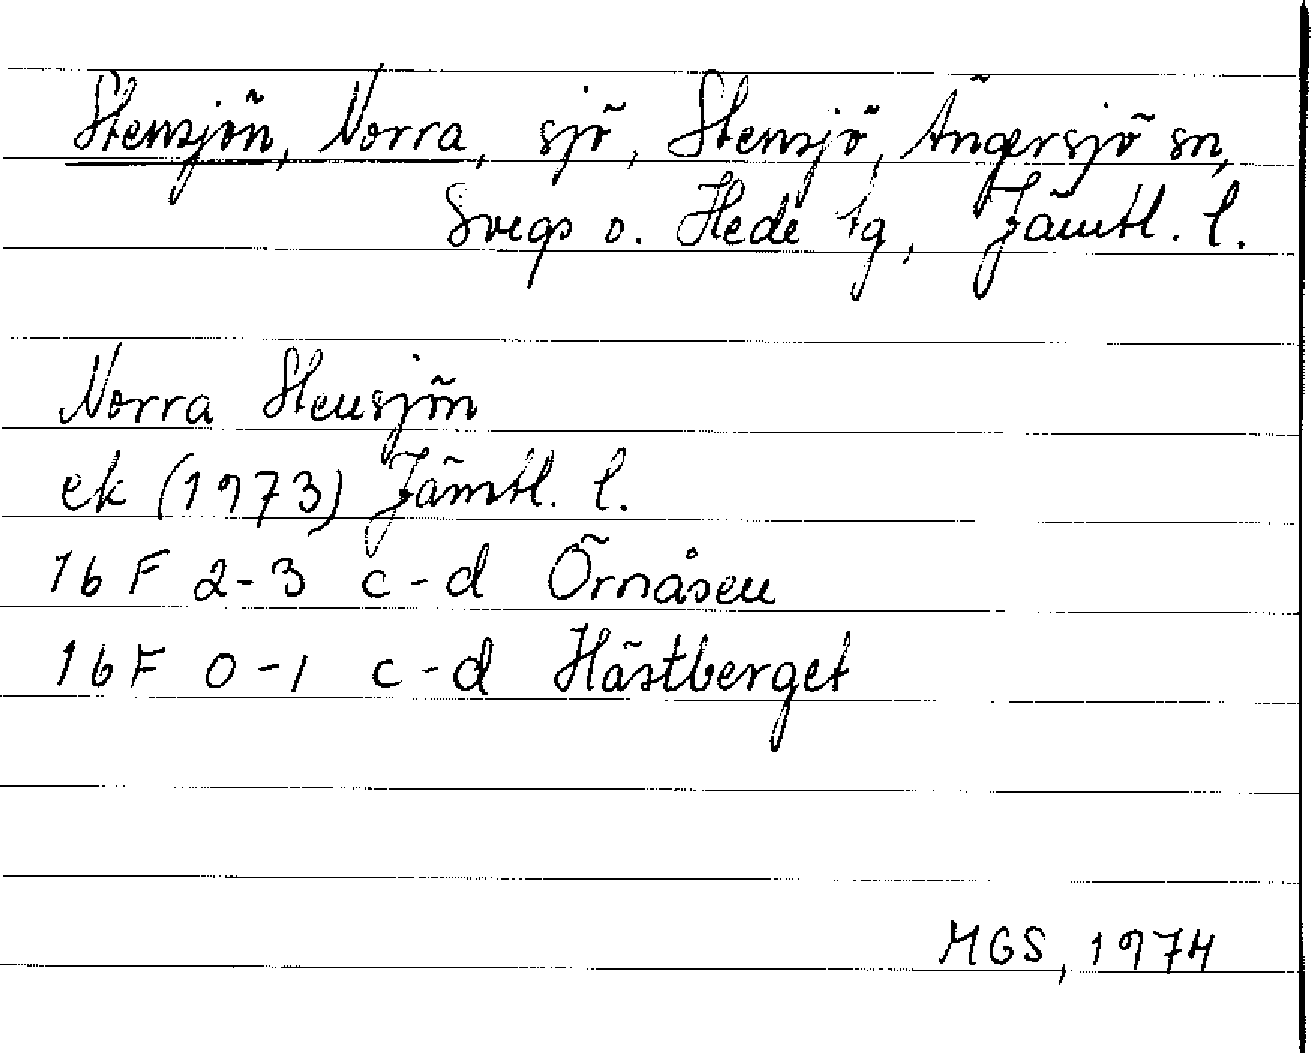 Stensjön, Norra, sjö, Stensjö, Ängersjö sn,
Svegs o. Hede tg, Jämtl. l.
Norra Stensjön
ek (1973) Jämtl. l.
16 F 2-3 c-d Örnåsen
16 F 0-1 c-d Hästberget
MGS, 1974